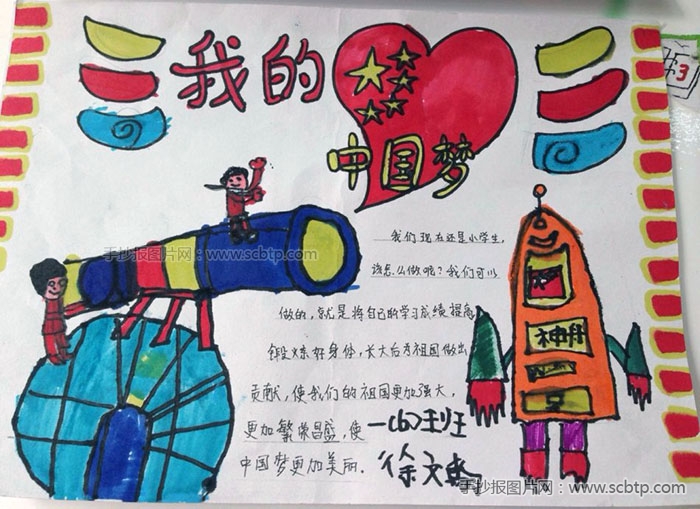 我的
中国梦
手抄报图片网：www.scbtp.com
我们现在还是小学生，
该怎么做呢？我们可以
做的，就是将自己的学习成绩提高
锻炼好身体，长大后为祖国做出
贡献，使我们的祖国更加强大，
更加繁荣昌盛，使
中国梦更加美丽．
神舟
一(6)班
徐文
手抄报图片网：www.scbtp.com